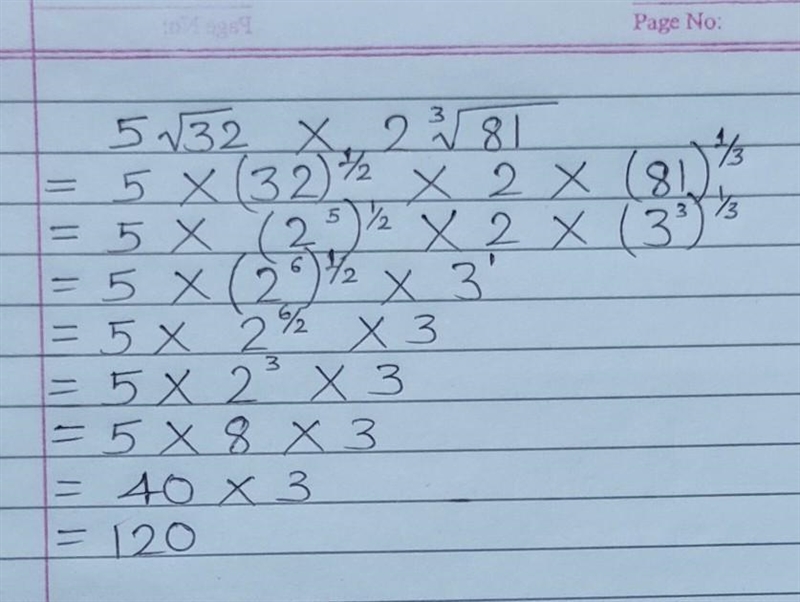 Page No:
5√32 × 2 ∛81
= 5 × (32)^1/2 × 2 × (81)^1/3
= 5 × (2^5)^1/2 × 2 × (3^3)^1/3
= 5 × (2^6)^1/2 × 3^1
= 5 × 2^6/2 × 3
= 5 × 2^3 × 3
= 5 × 8 × 3
= 40 × 3
= 120